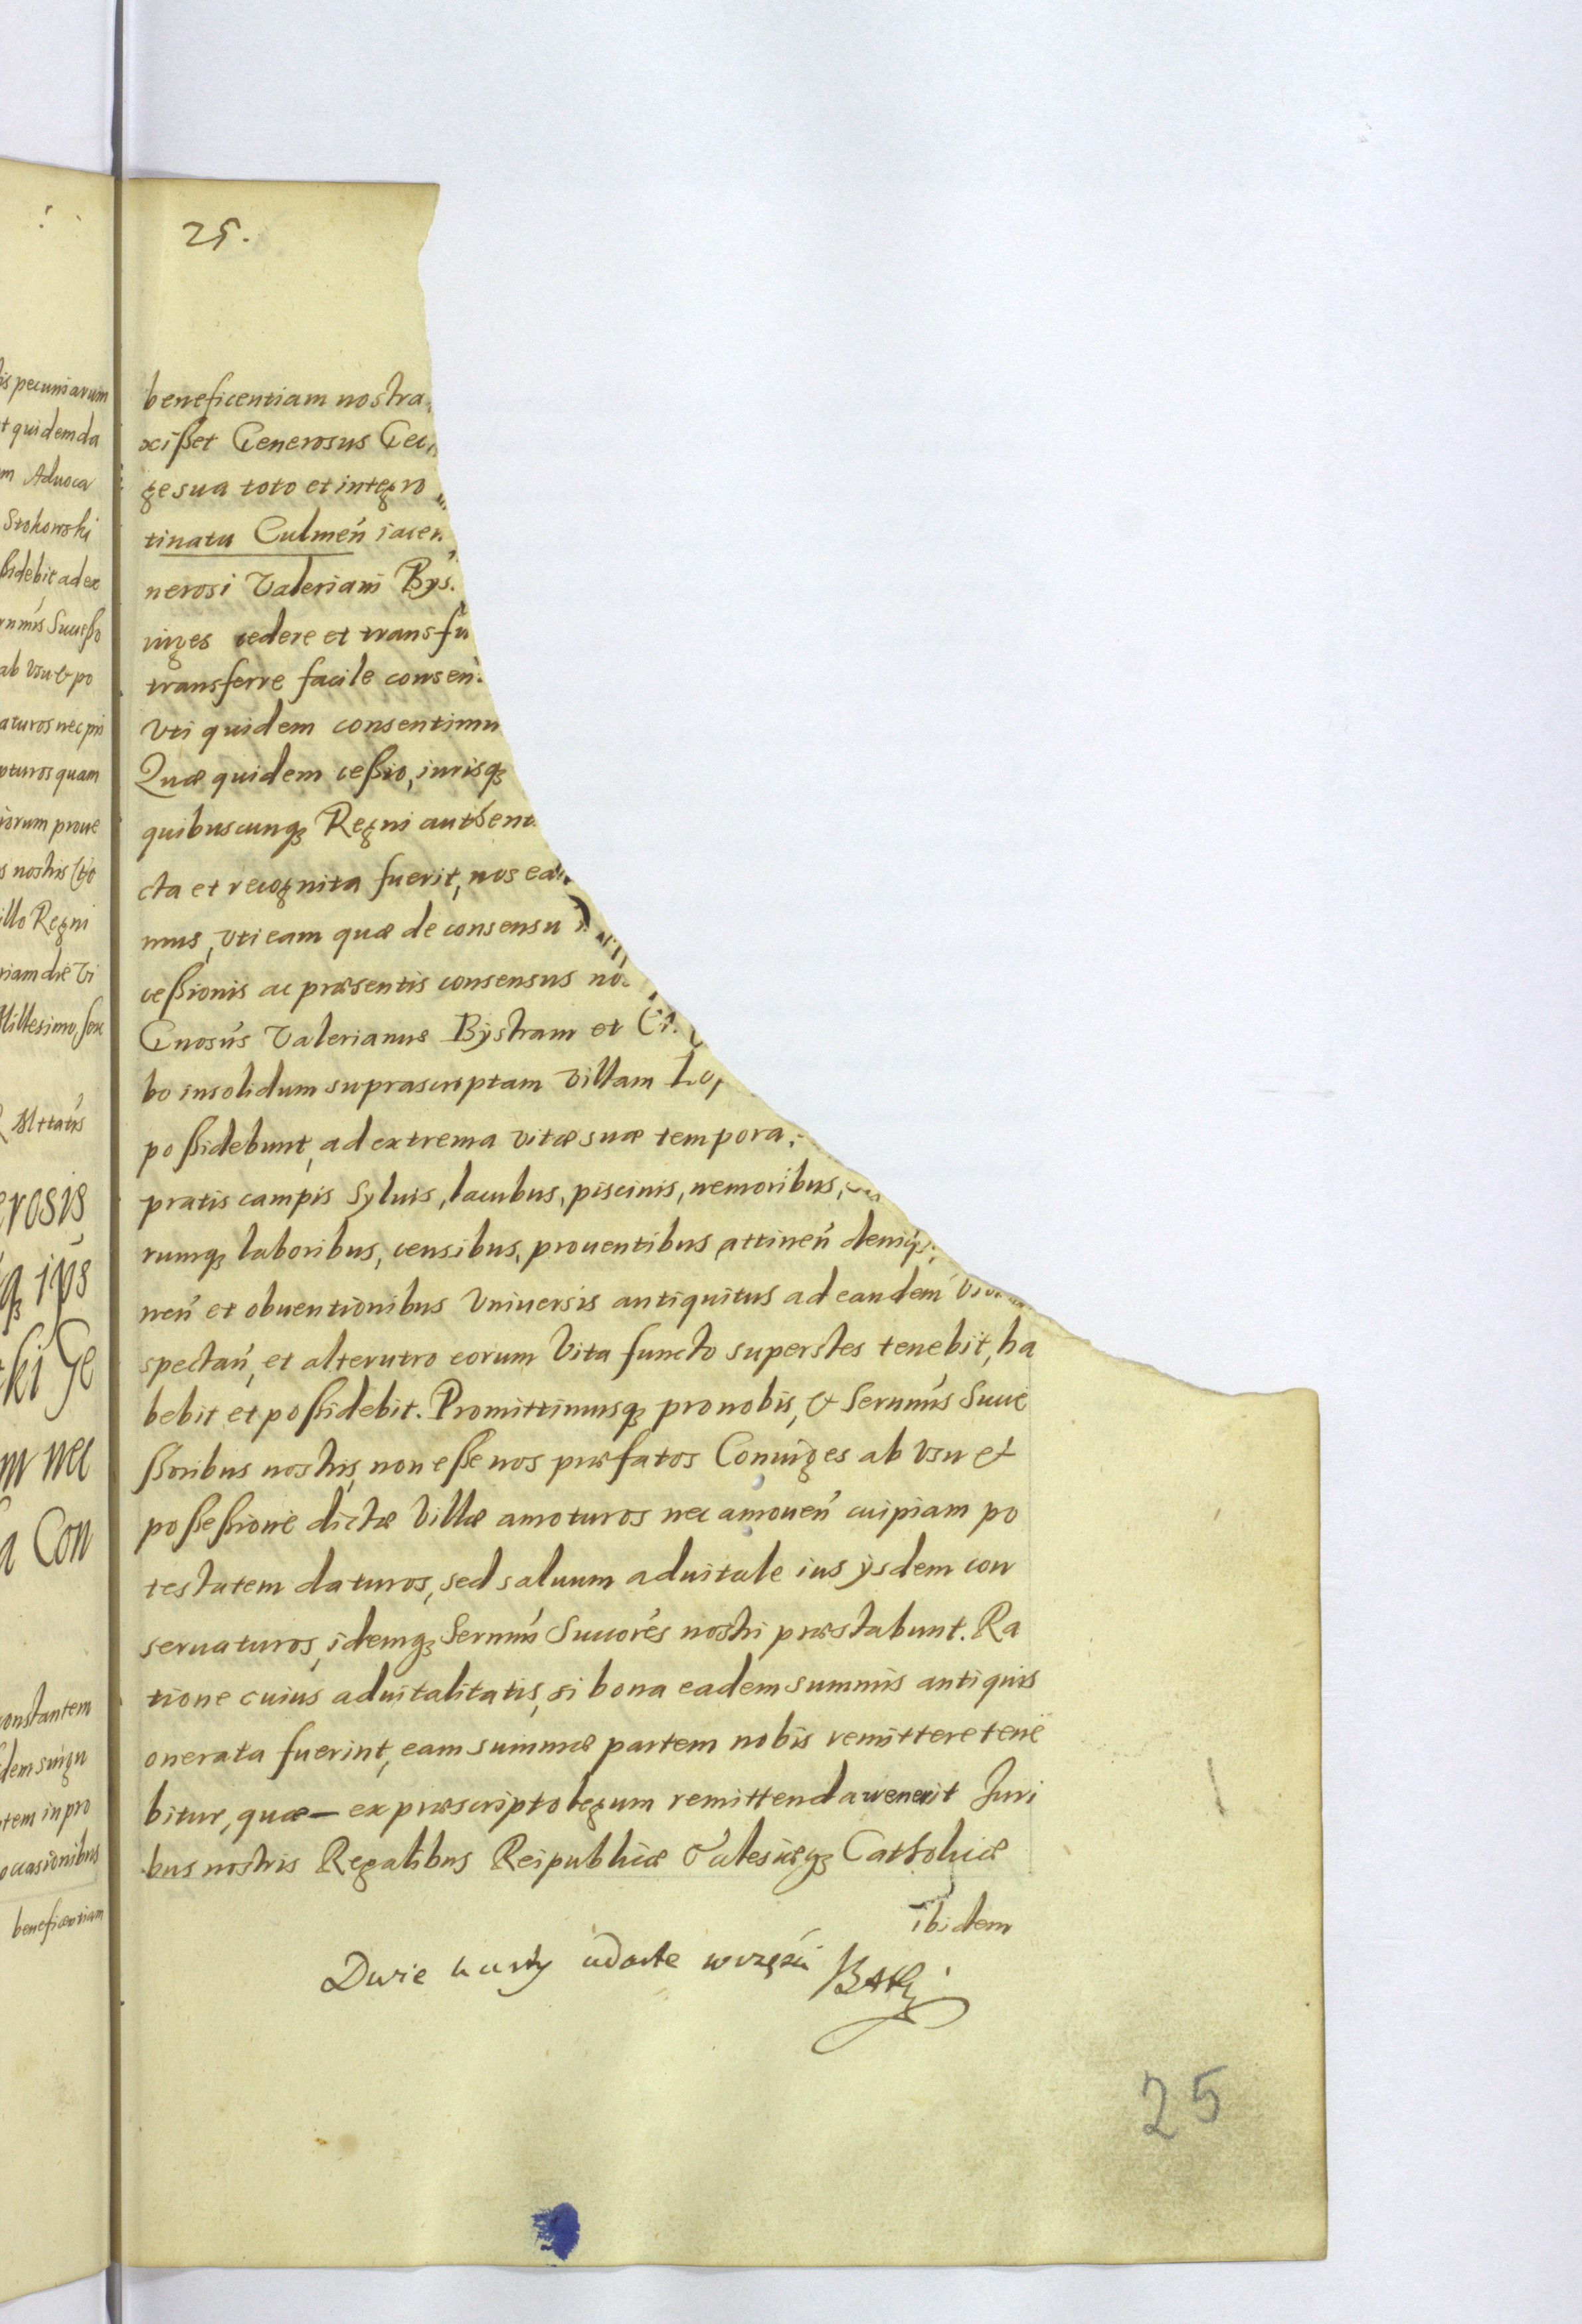 is pecuniarum
t quidem da
m Aduoca
Stokowski
ssidebit ad ex
rnmis Successo
ab vsu & po
aturos nec pri
pturos quam
iorum proue
s nostris
illo Regni
riam die Vi
Millesimo, sex
R Mttatis
erosis
ꝗ ips
ki Ge
m nec
a Con
constantem
dem suigu
tem in pro
occasionibus
beneficentiam
25.
beneficentiam nostra
xißet Generosus Geo
ge sua toto et integro
tinatu Culmen̄ iacen
nerosi Valeriani Bys
iuges cedere et transfu
transferre facile consen
Vti quidem consentimu
Quæ quidem ceßio, iurisꝗ
quibuscunꝗ Regni authent
cta et recognita fuerit, nos ea
mus, vti eam quæ de consensu
ceßionis ac præsentis consensus no
Gnosus Valerianus Bystram et
bo insolidum suprascriptam villam Lo
poßidebunt, ad extrema vitæ suæ tempora
pratis campis Syluis, lacubus, piscinis, nemoribus,
rumꝗ laboribus, censibus, prouentibus attinen̄ deniꝗ
nen̄ et obuentionibus Vniuersis antiquitus ad eandem
spectan̄, et alterutro eorum Vita functo superstes tenebit, ha
bebit et poßidebit. Promittimusꝗ pro nobis, & Sernmis Succe
ßoribus nostris, non eße nos præfatos Coniuges ab Vsu et
poßeßione dictæ Villæ amoturos nec amouen̄ cuipiam po
testatem daturos, sed saluum aduitale ius ysdem con
seruaturos, idemꝗ Sernmi Succores nostri præstabunt. Ra
tione cuius aduitalitatis, si bona eadem summis antiquis
onerata fuerint, eam summæ partem nobis remittere tene
bitur, quæ — ex præscripto legum remittenda uenerit Juri
bus nostris Regalibus Reipublicæ Eclesiæꝗ Catholicæ
ibidem
Dwie karty udarte wczęści
25